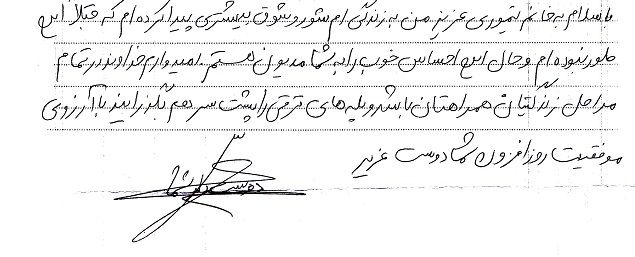 با سلام به خانم تیموری عزیز من به زندگی ام شور و شوق بیشتری پیدا کرده ام که قبلاً این
طور نبوده ام و حال این احساس خوب را به شما مدیون هستم. امیدوارم خداوند در تمام
مراحل زندگیتان همراهتان باشد و پله های ترقی را پشت سر هم بگذرانید با آرزوی
موفقیت روز افزون شما دوست عزیز
دوستدار شما